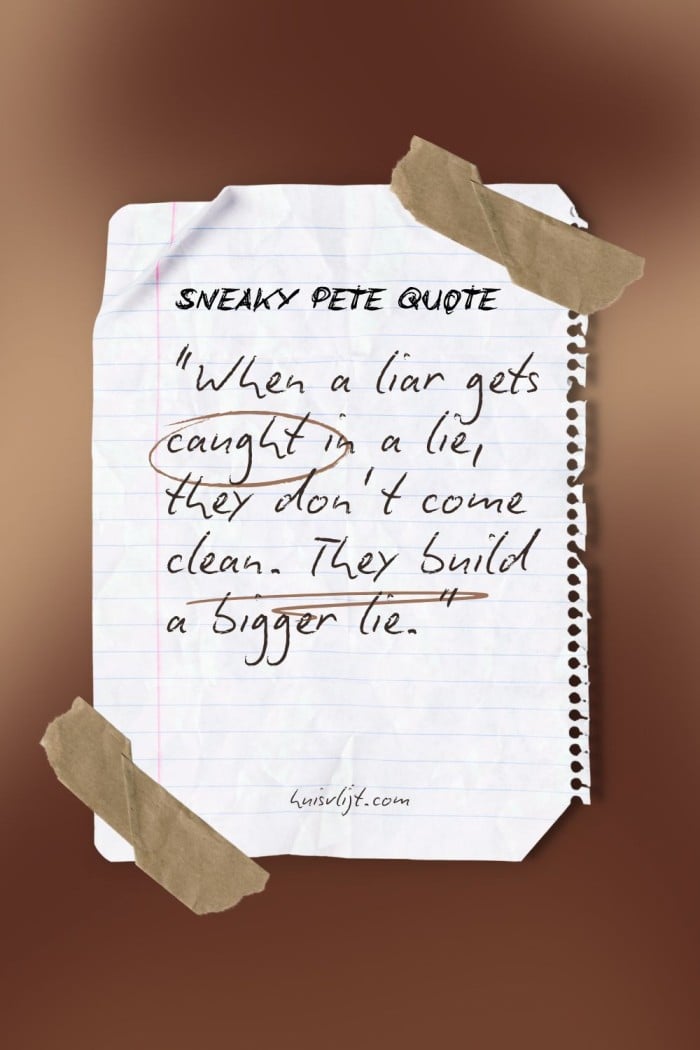 SNEAKY PETE QUOTE
"When a liar gets
caught in a lie,
they don't come
clean. They build
a bigger lie."
huisvlijt.com